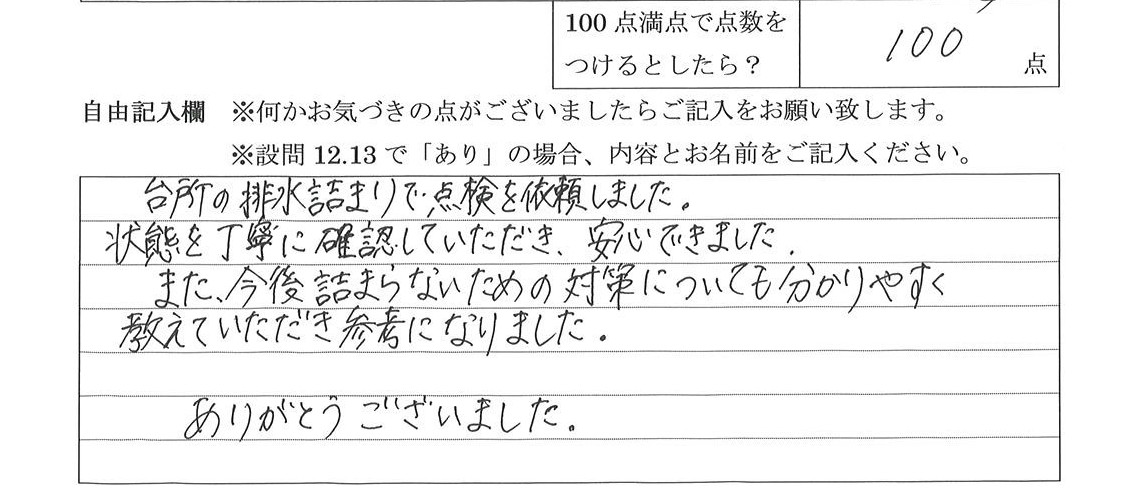 100 点満点で点数を
つけるとしたら？
100 点
自由記入欄 ※何かお気づきの点がございましたらご記入をお願い致します。
※設問 12.13 で「あり」の場合、内容とお名前をご記入ください。
台所の排水詰まりで点検を依頼しました。
状態を丁寧に確認していただき、安心できました.
また、今後詰まらないための対策についても分かりやすく
教えていただき参考になりました。
ありがとうございました。